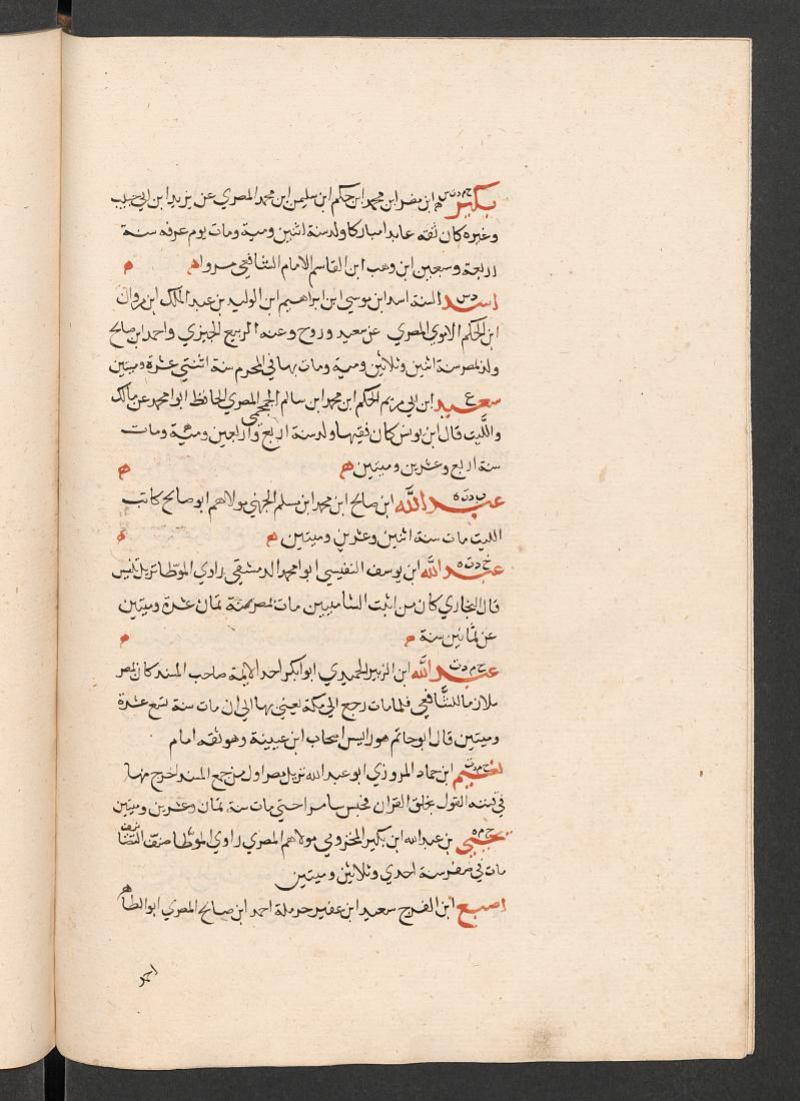 بكير خ م د ت س ابن مضر ابن محمد ابن حكم ابن سليمن ابن محمد المصري عن يزيد ابن ابي حبيب
وغيره كان ثقه عابدا مباركا ولد سنة اثنين ومية ومات يوم عرفه سنة
اربعة وسبعين ابن وهب ابن القاسم الامام الشافعي مروا ه م
اسد دس السنة اسد ابن موسي ابن ابراهيم ابن الوليد بن عبد الملك ابن مروان
ابن الحكم الاموي المصري عن معيد وروح وعنه الربيع الجيزي واحمد ابن صالح
ولد بمصر سنة اثنين وثلاثين ومية ومات بها في المحرم سنة اثنتي عشرة وميتين
سعيد ع ابن ابي مريم الحكم ابن محمد ابن سالم الجمحمي المصري الحافظ ابوا محمد عن مالك
والليت قال ابن يونس كان فقيها ولد سنة اربع واربعين ومية ومات
سنة اربع وعشرين وميتين ه ه
عبد الله ابن صالح ابن محمد ابن مسلم الجهني مولاهم ابو صالح كاتب
الليت مات سنة اثنين وعشرين وميتين ه ه
عبد الله خ دت ابن يوسف التنيسي ابوا محمد الدمشقي راوي الموطا نزيل تنيس
قال البخاري كان من اثبت الشاميين مات بمصر سنة ثمان عشرة وميتين
عن ثمانين سنة م م
عبد الله خ م دت ابن الزبير الحميدي ابوا بكر احد الايمة صاحب المسند كان بمصر
ملازما للشافعي فلما مات رجع الي مكة يعني بها الي ان مات سنة تسع عشرة
وميتين قال ابو حاتم هو رايس اصحاب ابن عيينة وهو ثقه امام
نعيم خ م دت ابن حماد المروزي ابو عبد الله نزيل مصر اول من جمع المسند اخرج منها
في فتنه القول بخلق القران محبس سامرا حتي مات سنة ثمان وعشرين وميتين
يحيي خ م ه بن عبد الله ابن بكير المخزومي مولاهم المصري راوي الموطا صنف التصانيف
مات في صفر سنة احدي وثلاثين وميتين
اصبع ابن الفرج سعيد ابن عفير حرملة احمد ابن صالح المصري ابو الطاهر
احمد